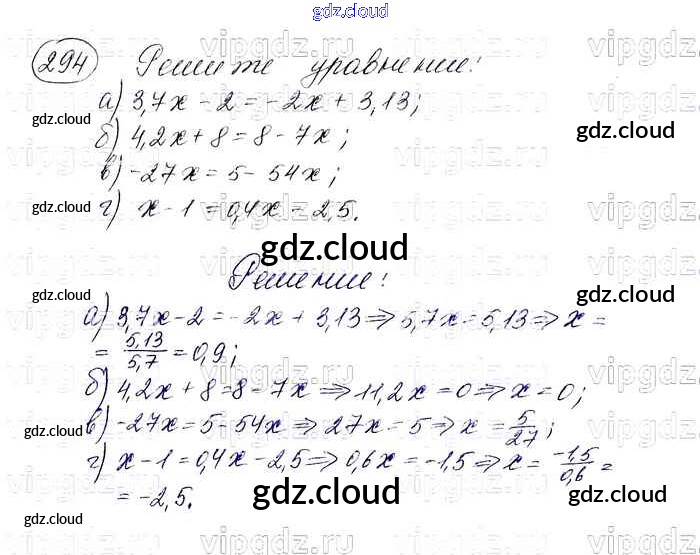 gdz.cloud
294 Решите уравнение:
а) 3,7x - 2 = -2x + 3,13;
б) 4,2x + 8 = 8 - 7x;
в) -27x = 5 - 54x;
г) x - 1 = 0,4x - 2,5.
Решение:
а) 3,7x - 2 = -2x + 3,13 ⇒ 5,7x = 5,13 ⇒ x =
= 5,13/5,7 = 0,9;
б) 4,2x + 8 = 8 - 7x ⇒ 11,2x = 0 ⇒ x = 0;
в) -27x = 5 - 54x ⇒ 27x = 5 ⇒ x = 5/27;
г) x - 1 = 0,4x - 2,5 ⇒ 0,6x = -1,5 ⇒ x = -1,5/0,6 =
= -2,5.
gdz.cloud
gdz.cloud
gdz.cloud
gdz.cloud
gdz.cloud
gdz.cloud
gdz.cloud
gdz.cloud
gdz.cloud
gdz.cloud
gdz.cloud
vipgdz